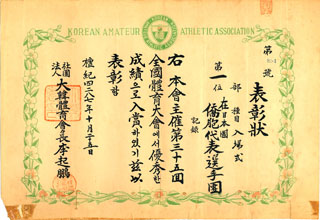 KOREAN AMATEUR ATHLETIC ASSOCIATION
第 號
表彰狀
部 種目 入場式
第一位 在日本國
僑胞代表選手團
記錄
右 本會主催第三十五回
全國體育大會에서優秀한
成績으로入賞하였기玆以
表彰함
檀紀四二八七年十月二五日
社團法人 大韓體育會長李起鵬